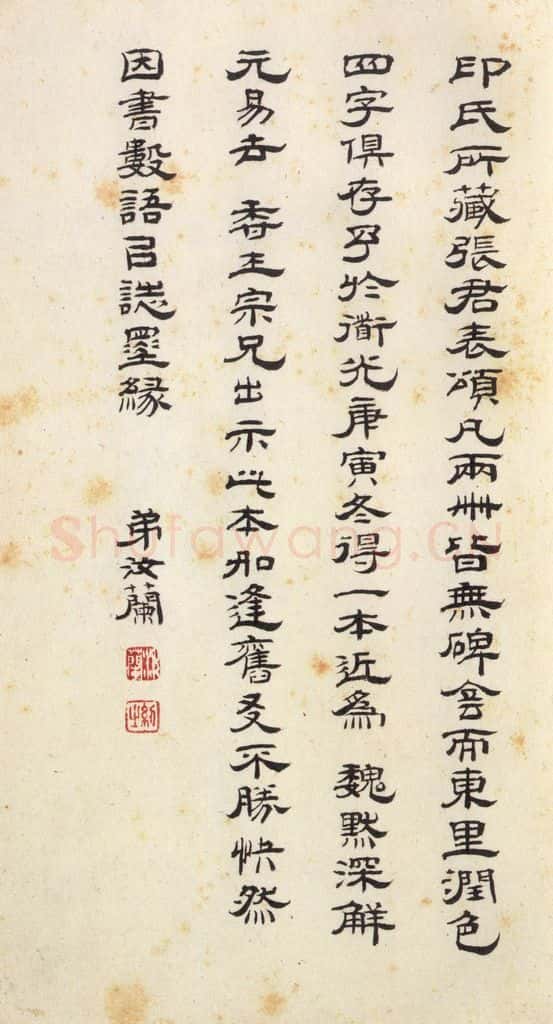 印氏所藏張君表頌凡兩冊皆無碑舍而東里潤色
四字俱存予於道光庚寅冬得一本近為 魏默深解
元易去 香生宗兄出示此本如逢舊友不勝快然
因書數語㠯誌墨緣
弟汝蘭
Shufawang.cn